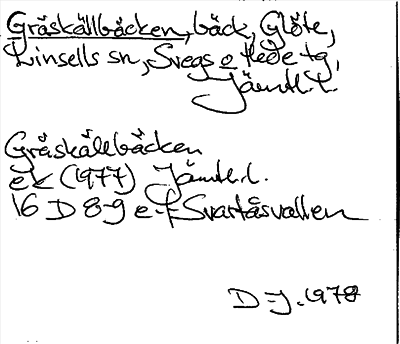 Gråskällbäcken, bäck, Glöte,
Linsells sn, Svegs o Hede tg,
Jämtl. l.
Gråskällbäcken
ek (1977) Jämtl. l.
16 D 8-9 e-f Svartåsvallen
D-J. 1978